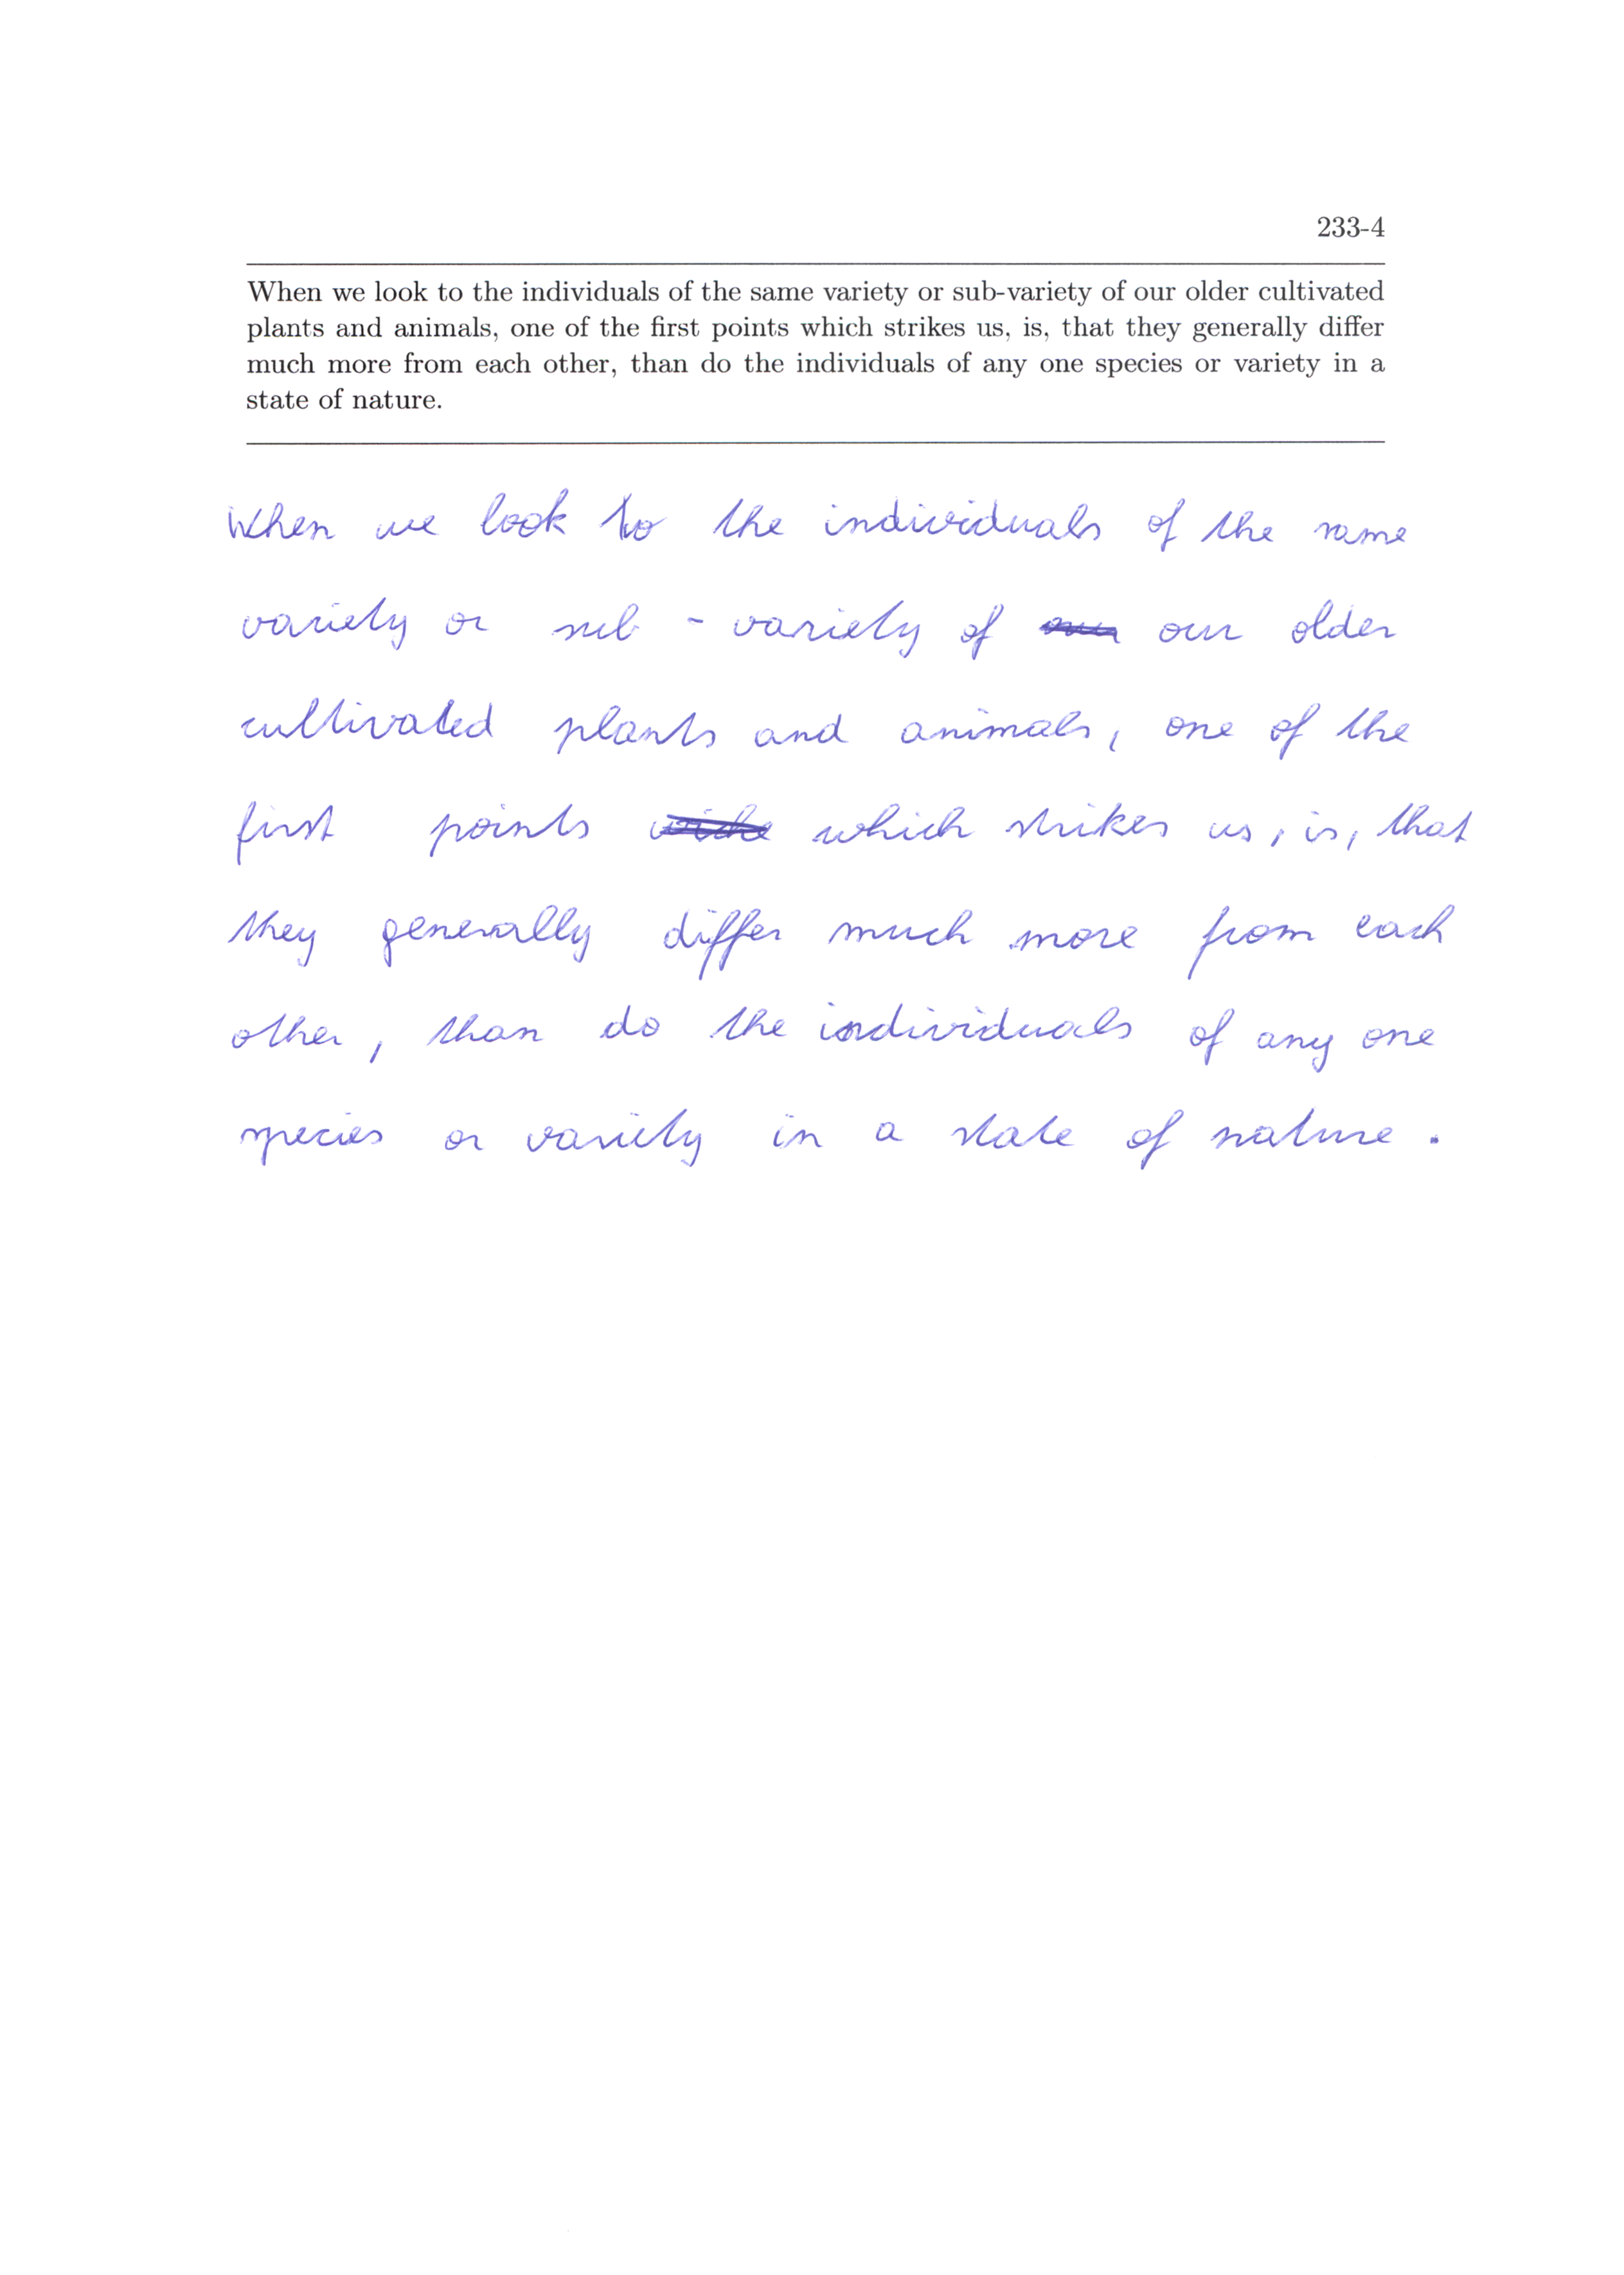 233-4
When we look to the individuals of the same variety or sub-variety of our older cultivated
plants and animals, one of the first points which strikes us, is, that they generally differ
much more from each other, than do the individuals of any one species or variety in a
state of nature.
When we look to the individuals of the same
variety or sub - variety of our older
cultivated plants and animals, one of the
first points which strikes us, is, that
they generally differ much more from each
other, than do the individuals of any one
species or variety in a state of nature.